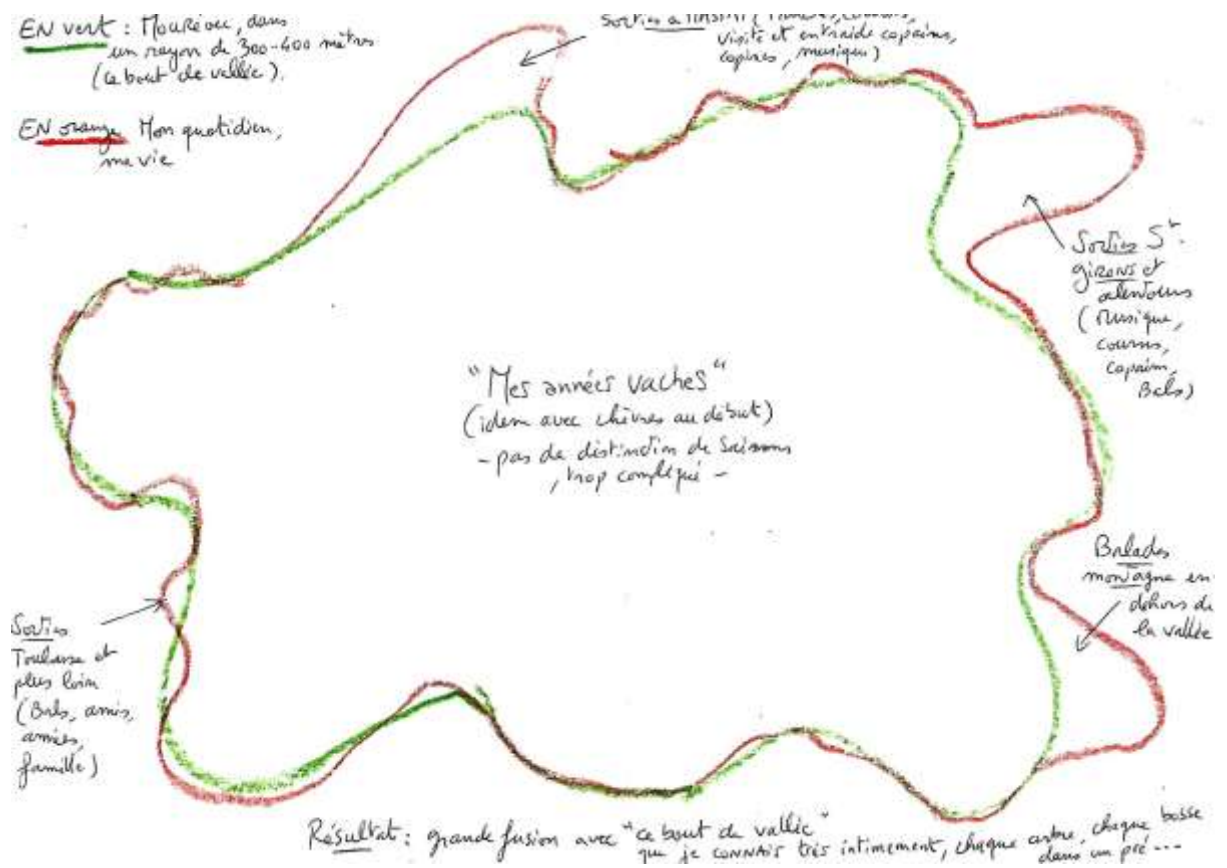 EN vert : Mouréouec, dans
un rayon de 300-400 mètres
(ce bout de vallée).
EN orange Mon quotidien,
ma vie
Sorties à
visite et entraide copains,
copines, musique)
Sorties St-
girons et
alentours
(Musique,
courses,
copains,
Bals)
"Mes années vaches"
(idem avec chèvres au début)
- pas de distinction de saisons
, trop compliqué -
Balades
montagne en
dehors de
la vallée
Sorties
Toulouse et
plus loin
(Bals, amis,
amies,
famille)
Résultat : grande fusion avec "ce bout de vallée"
que je CONNAIS très intimement, chaque arbre, chaque bosse
dans un pré ---